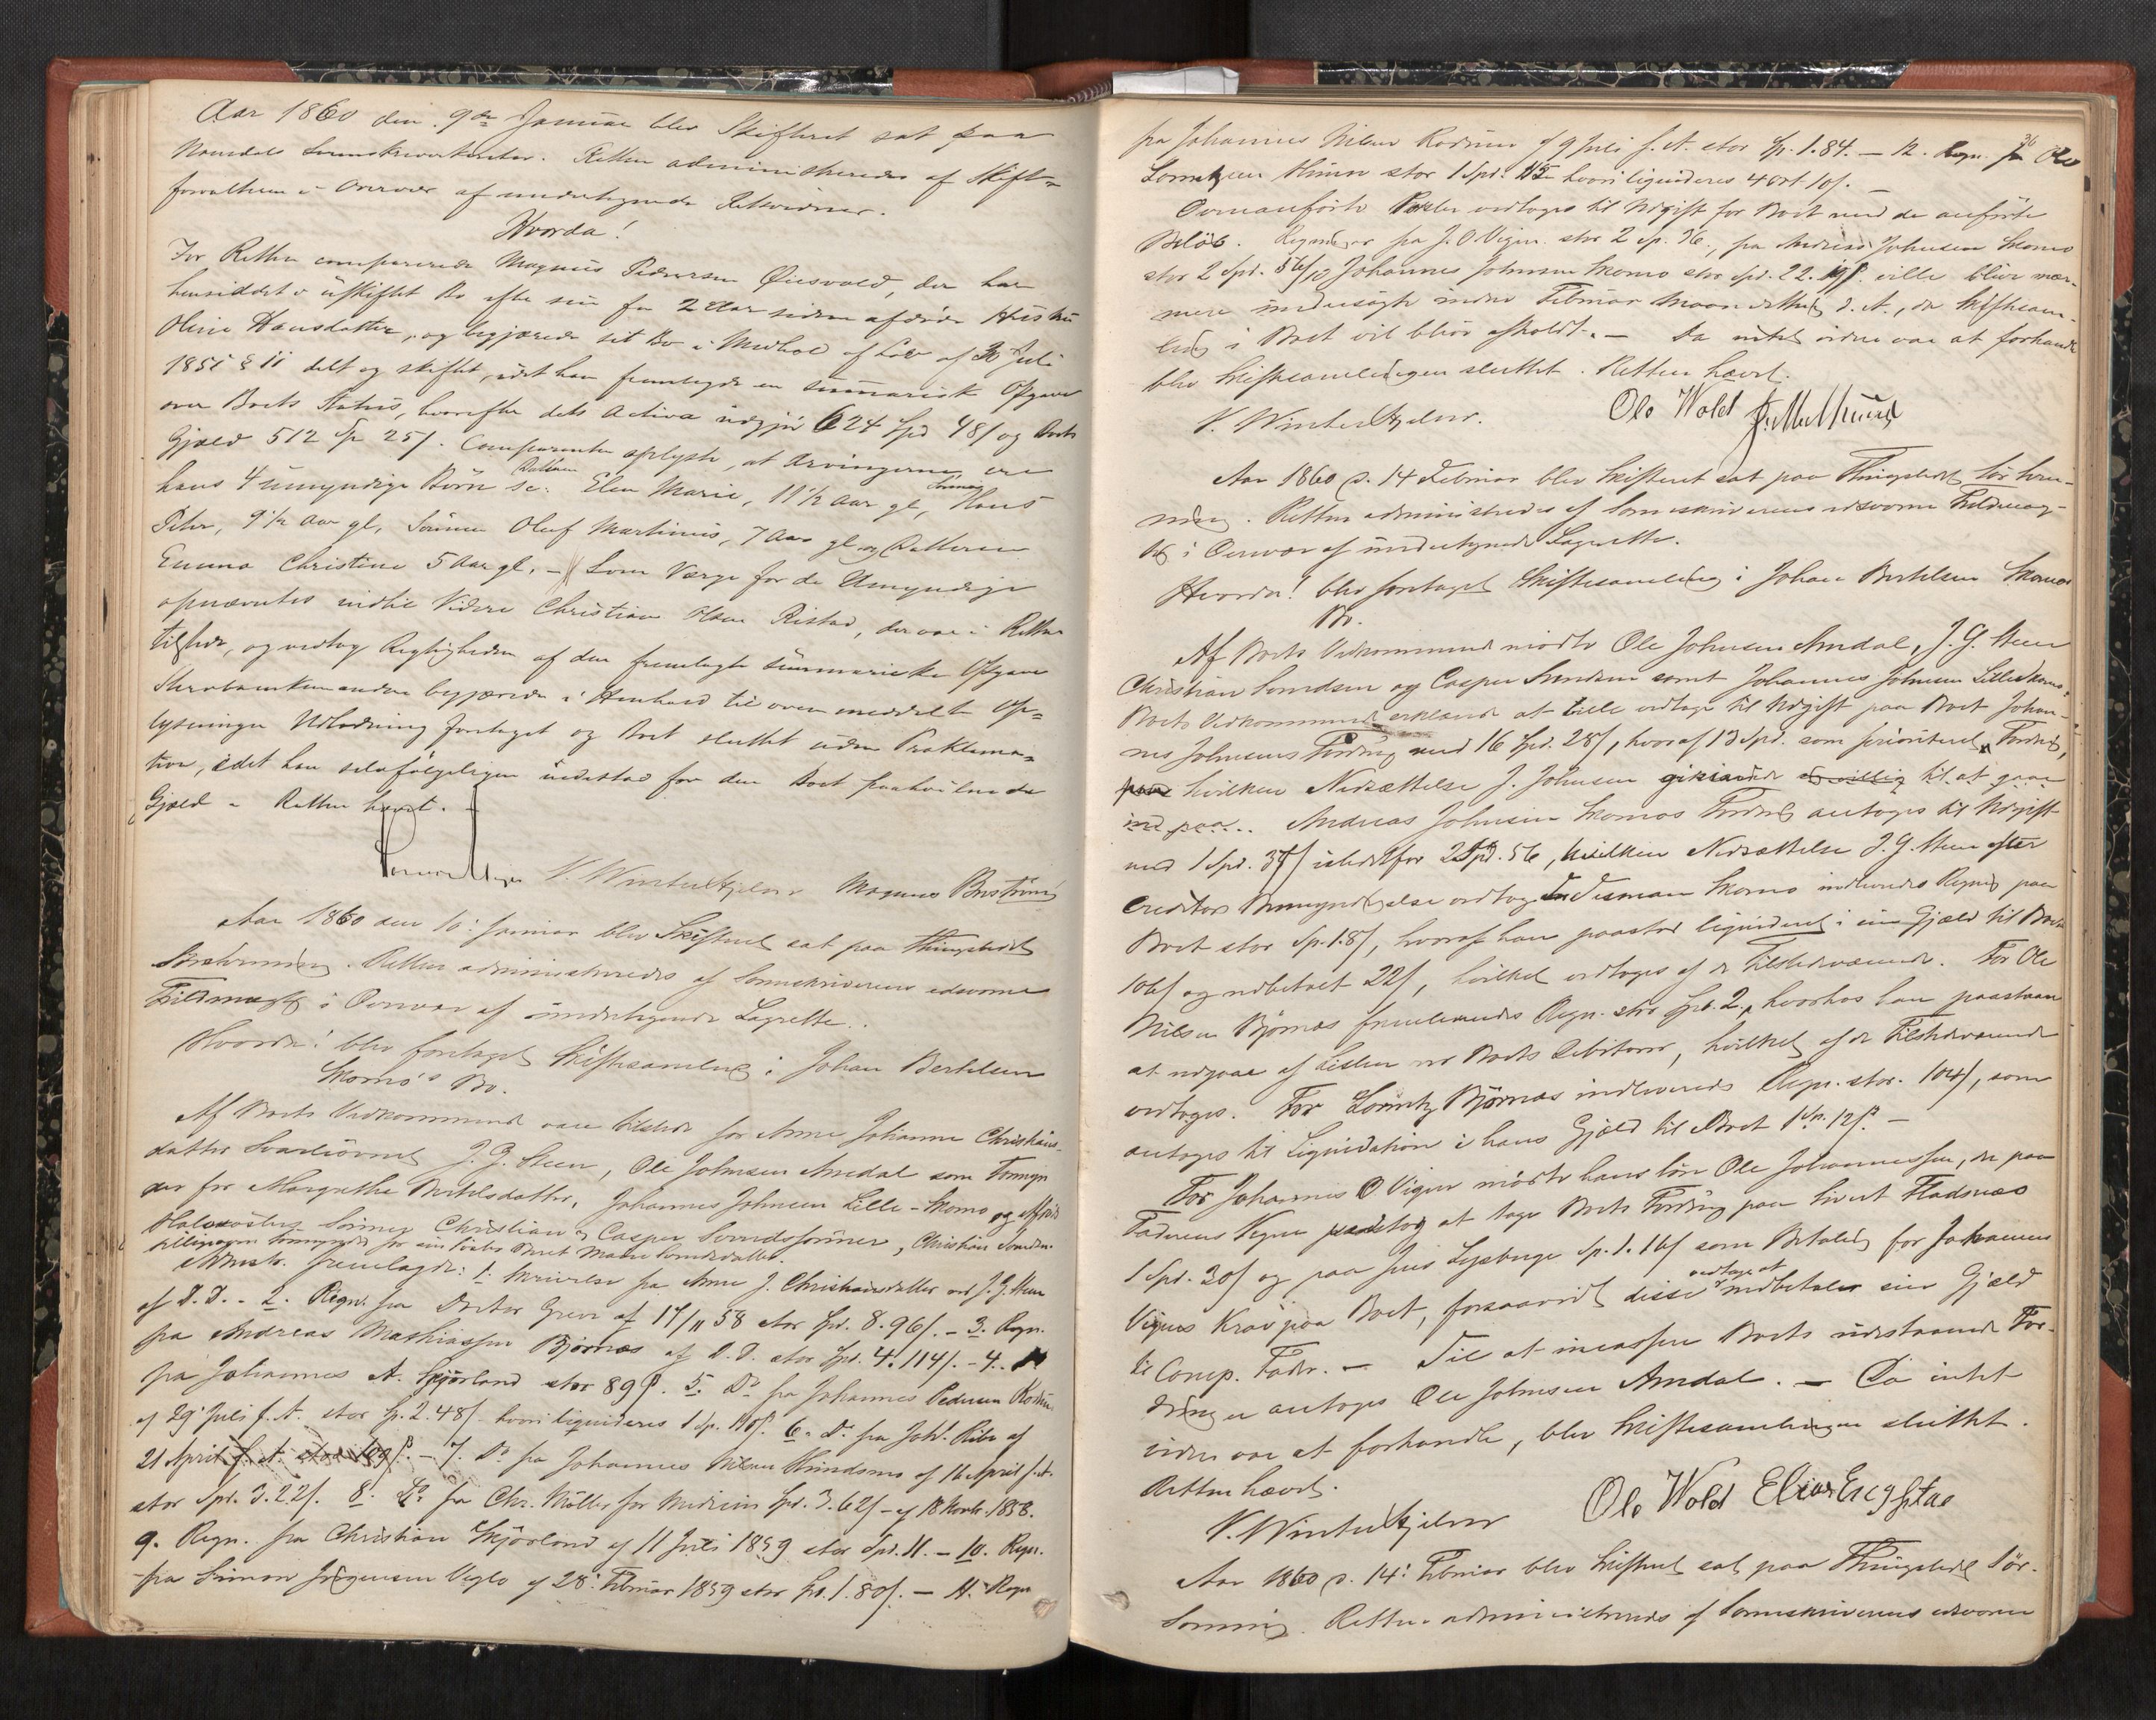 Aar 1860 den 9de Januar blev Skifteret sat paa
Namdals Sorenskriverkontor. Retten administreredes af Skifte-
forvalteren i Overvær af undertegnede Retsvidner.
Hvorda!
For Retten comparerede Magnus Pedersen Øiesvold, der har
hensiddet i uskiftet Bo efter sin for 2 Aar siden afdøde Hustru
Oline Hansdatter, og begjærede sit Bo i Medhold af Lov af 30 Juli
1851 § 11 delt og skiftet, idet han fremlagde en summarisk Opgave
over Boets Status, hvorefter dets Activa udgjør 624 Spd 48 s og Boets
Gjæld 512 Sp 25 s. Comparenten oplyste, at Arvingerne ere
hans 4 umyndige Børn sc: Datteren Elen Marie, 11 1/2 Aar gl, Sønnen Hans
Peter, 9 1/2 Aar gl, Sønnen Oluf Martinus, 7 Aar gl og Datteren
Emma Christine 5 Aar gl. – Som Værge for de Umyndige
opnævntes indtil Videre Christian Ristad, der var i Retten
tilstede, og vedtog Rigtigheden af den fremlagte summariske Opgave
begjærede i Henhold til oven meddelte Op-
lysninger Udlodning foretaget og Boet sluttet uden Proklama-
tion, idet han selvfølgeligen indestod for den Boet paahvilende
Gjæld – Retten hævet.
V. Winter Hjelm Magnus
Aar 1860 den 10: Januar blev Skifteret sat paa Thingstedet
Retten administreredes af Sorenskriverens edsvorne
Fuldmægtig i Overvær af undertegnede Lagrette.
Hvorda! blev foretaget Skiftesamling i Johan Bertelsen
Skomo's Bo.
Af Boets Vedkommende vare tilstede for Anne Johanne Christians-
datter J. G. Steen, Ole Johnsen Amdal som Formyn-
der for Margrethe Bertelsdatter, Johannes Johnsen Lille-Skomo og Afdøde
Halvsøsters Sønner Christian og Casper Svendssønner, Christian Svendsen
tilligemed Formynder for sin Søster Beret Marie Svendsdatter.
Admstr. fremlagde: 1. Skrivelse fra Anne J. Christiansdatter ved J. G. Steen
af D. D. – 2. Regn. fra Doctor Greve af 17/11 58 stor Spd. 8. 96 s. – 3. Regn.
fra Andreas Mathiassen Bjørnes af D. D. stor Spd. 4. 114 s. – 4.
fra Johannes A. Skjørland stor 89 s. 5. Do fra Johannes Pedersen
af 29 Juli f. A. stor Sp. 2. 48 s. hvori liquideres 1 Sp. 6. Do fra Joh. Ribe af
21 April f. A. stor 109 s. – 7. Do fra Johannes Nilsen af 16 April f. A.
stor Spd. 3. 22 s. 8. Do fra Chr. Møller for Medicin Spd. 3. 62 s – af 18 Novb. 1858.
9. Regn. fra Christian Skjørland af 11 Juli 1859 stor Spd. 11. – 10. Regn.
fra Simon Jørgensen Veglo af 28: Februar 1859 stor Sp. 1. 80 s. – 11. Regn
36
fra Johannes Nilsen af 9 Juli f. A. stor Sp. 1. 84. – 12. Regn. fra Ole
Lorentzen stor 1 Spd. hvori liquideres 4 ort 10 s. –
Ovenanførte Poster vedtoges til Udgift for Boet med de anførte
Beløb. Regninger fra J. O. Vigen stor 2 Sp. 36, fra Andreas Johnsen Skomo
stor 2 Spd. 56 s, Johannes Johnsen Skomo stor Spd. 22. ville blive nær-
mere undersøgte inden Februar Maaneds d. A., da Skiftesam-
ling i Boet vil blive afholdt. – Da intet videre var at forhandle
blev Skiftesamlingen sluttet. Retten hævet.
V. Winter Hjelm. Ole Wold
Aar 1860 d. 14 Februar blev Skifteret sat paa Thingstedet
Retten administredes af Sorenskriverens edsvorne Fuldmæg-
tig i Overvær af undertegnede Lagrette.
Hvorda! blev foretaget Skiftesamling i Johan Bertelsen Skomos
Bo.
Af Boets Vedkommende mødte Ole Johnsen Amdal, J. G. Steen
Christian Svendsen og Casper Svendsen samt Johannes Johnsen Lilleskomo.
Boets Vedkommende erklærede at ville vedtage til Udgift paa Boet Johan-
nes Johnsens Fordring med 16 Spd. 28 s, hvoraf 13 Spd. som prioriteret Fordring,
hvilken Nedsættelse J. Johnsen til at gaae
ind paa. Andreas Johnsen Skomos Fordring antoges til Udgift
med 1 Spd. 37 s istedetfor 2 Spd. 56, hvilken Nedsættelse J. G. Steen efter
Creditors Bemyndigelse vedtog. Skomo indleverede Regning paa
Boet stor Sp. 1. 8 s, hvoraf han paastod liquideret i sin Gjæld til Boet
106 s og udbetalt 22 s, hvilket vedtoges af de Tilstedeværende. For Ole
Nilsen Bjørnes fremlevendes Regn. stor Sp. 2, hvorhos han paastaaer
at udgaae af Listen over Boets Debitorer, hvilket af de Tilstedeværende
vedtoges. For Lorentz Bjørnæs indleveredes Regn. stor. 104 s, som
antoges til Liquidation i hans Gjæld til Boet 1 Sp. 12 s. –
For Johannes O. Vigen mødte hans Søn Ole Johannessen, der paa
Faderens Vegne vedtog at tage Boets Fordring paa Sivert Fladsnæs
1 Spd. 30 s og paa Lysberge Sp. 1. 16 s som Betaling for Johannes
Vigens Krav paa Boet, forsaavidt disse vedtage at indbetale sin Gjæld
til Comp. Fader. – Til at incassere Boets udestaaende For-
dringer antoges Ole Johnsen Amdal. – Da intet
videre var at forhandle, blev Skiftesamlingen sluttet.
Retten hævet.
V. Winter Hjelm Ole Wold Elias
Aar 1860 d. 14: Februar blev Skifteret sat paa Thingstedet Sør-
Retten administreredes af Sorenskriverens edsvorne